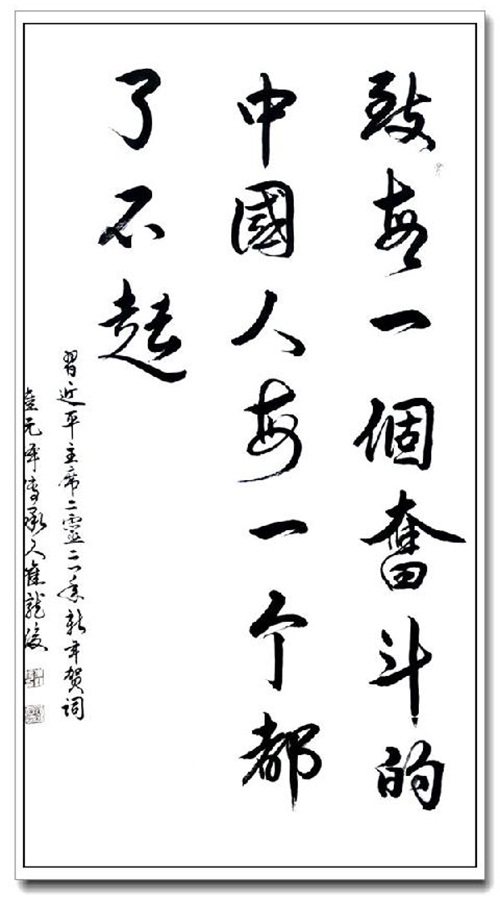 致每一個奮斗的
中國人每一个都
了不起
習近平主席二靈二一年新年贺詞
壹元笔傳承人崔龍俊